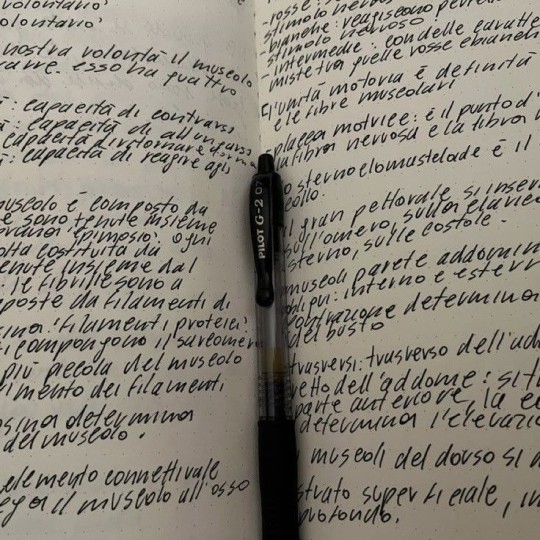 volontario
olontario
nostra volontà il muscolo
esso ha quattro
: capacità di contrarsi
: capacità di allungarsi
capacità di ritornare
: capacità di reagire agli
muscolo è composto da
e sono tenute insieme
epimisio. ogni
costituita da
tenute insieme dal
: le fibrille sono a
poste da filamenti di
sina: filamenti proteici
i compongono il sarcomero
più piccola del muscolo
rimento dei filamenti
osina determina
del muscolo.
elemento connettivale
lega il muscolo all'osso
PILOT G-2 07
-rosse:
stimolo nervoso
-bianche: reagiscono
stimolo nervoso
-intermedie: con delle
miste tra quelle rosse e bianche
l'unità motoria è definita
e le fibre muscolari
placca motrice: è il punto d'
la fibra nervosa e la fibra
o sternocleomastelade è il
collo.
il gran pettorale si inser
sull'omero, sulla
sterno, sulle costole.
muscoli parete addomin
obliqui: interno e estern
contrazione determina
del busto
trasversi: trasverso dell'ad
retto dell'addome: si t
parte anteriore, la
determina l'elevazio
i muscoli del dorso si
strato superficiale, in
profondo.